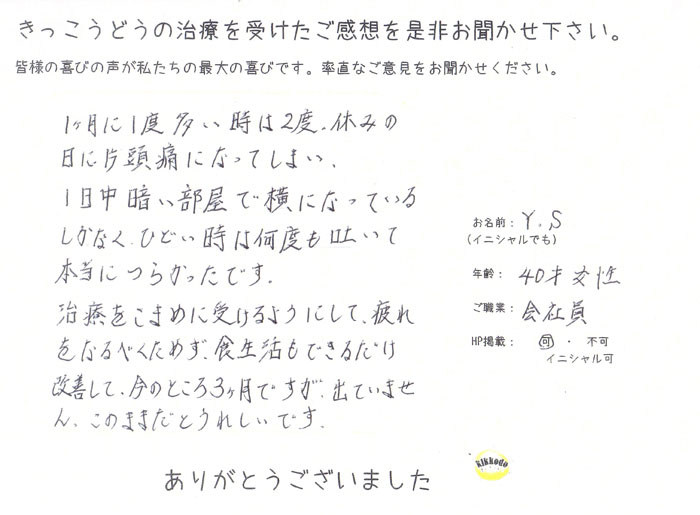 きっこうどうの治療を受けたご感想を是非お聞かせ下さい。
皆様の喜びの声が私たちの最大の喜びです。率直なご意見をお聞かせください。
1ヶ月に1度多い時は2度、休みの
日に片頭痛になってしまい、
1日中暗い部屋で横になっている
しかなく、ひどい時は何度も吐いて
本当につらかったです。
治療をこまめに受けるようにして、疲れ
をなるべくためず、食生活もできるだけ
改善して、今のところ3ヶ月ですが、出ていませ
ん、このままだとうれしいです。
お名前：Y.S
(イニシャルでも)
年齢：40才女性
ご職業：会社員
HP掲載：可・不可
イニシャル可
ありがとうございました
kikkodo